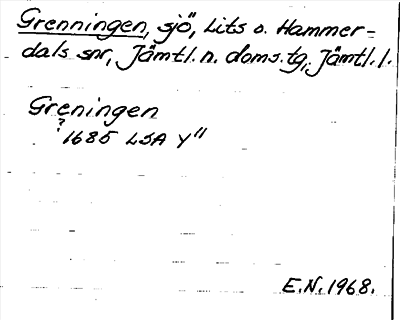 Grenningen, sjö, Lits o. Hammer=
dals snr, Jämtl. n. doms.tg, Jämtl. l.
Greningen
? 1685 LSA Y"
E.N. 1968.